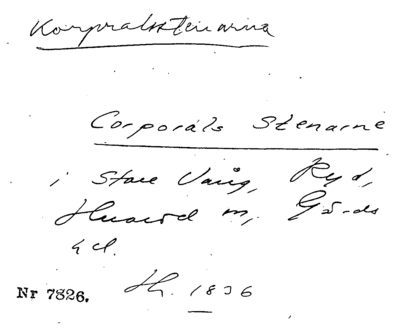 Korpralsstenarna
Corporals Stenarne
i Stare Vång, Ryd,
m, Gärds
hd.
Nr 7826. Th. 1836